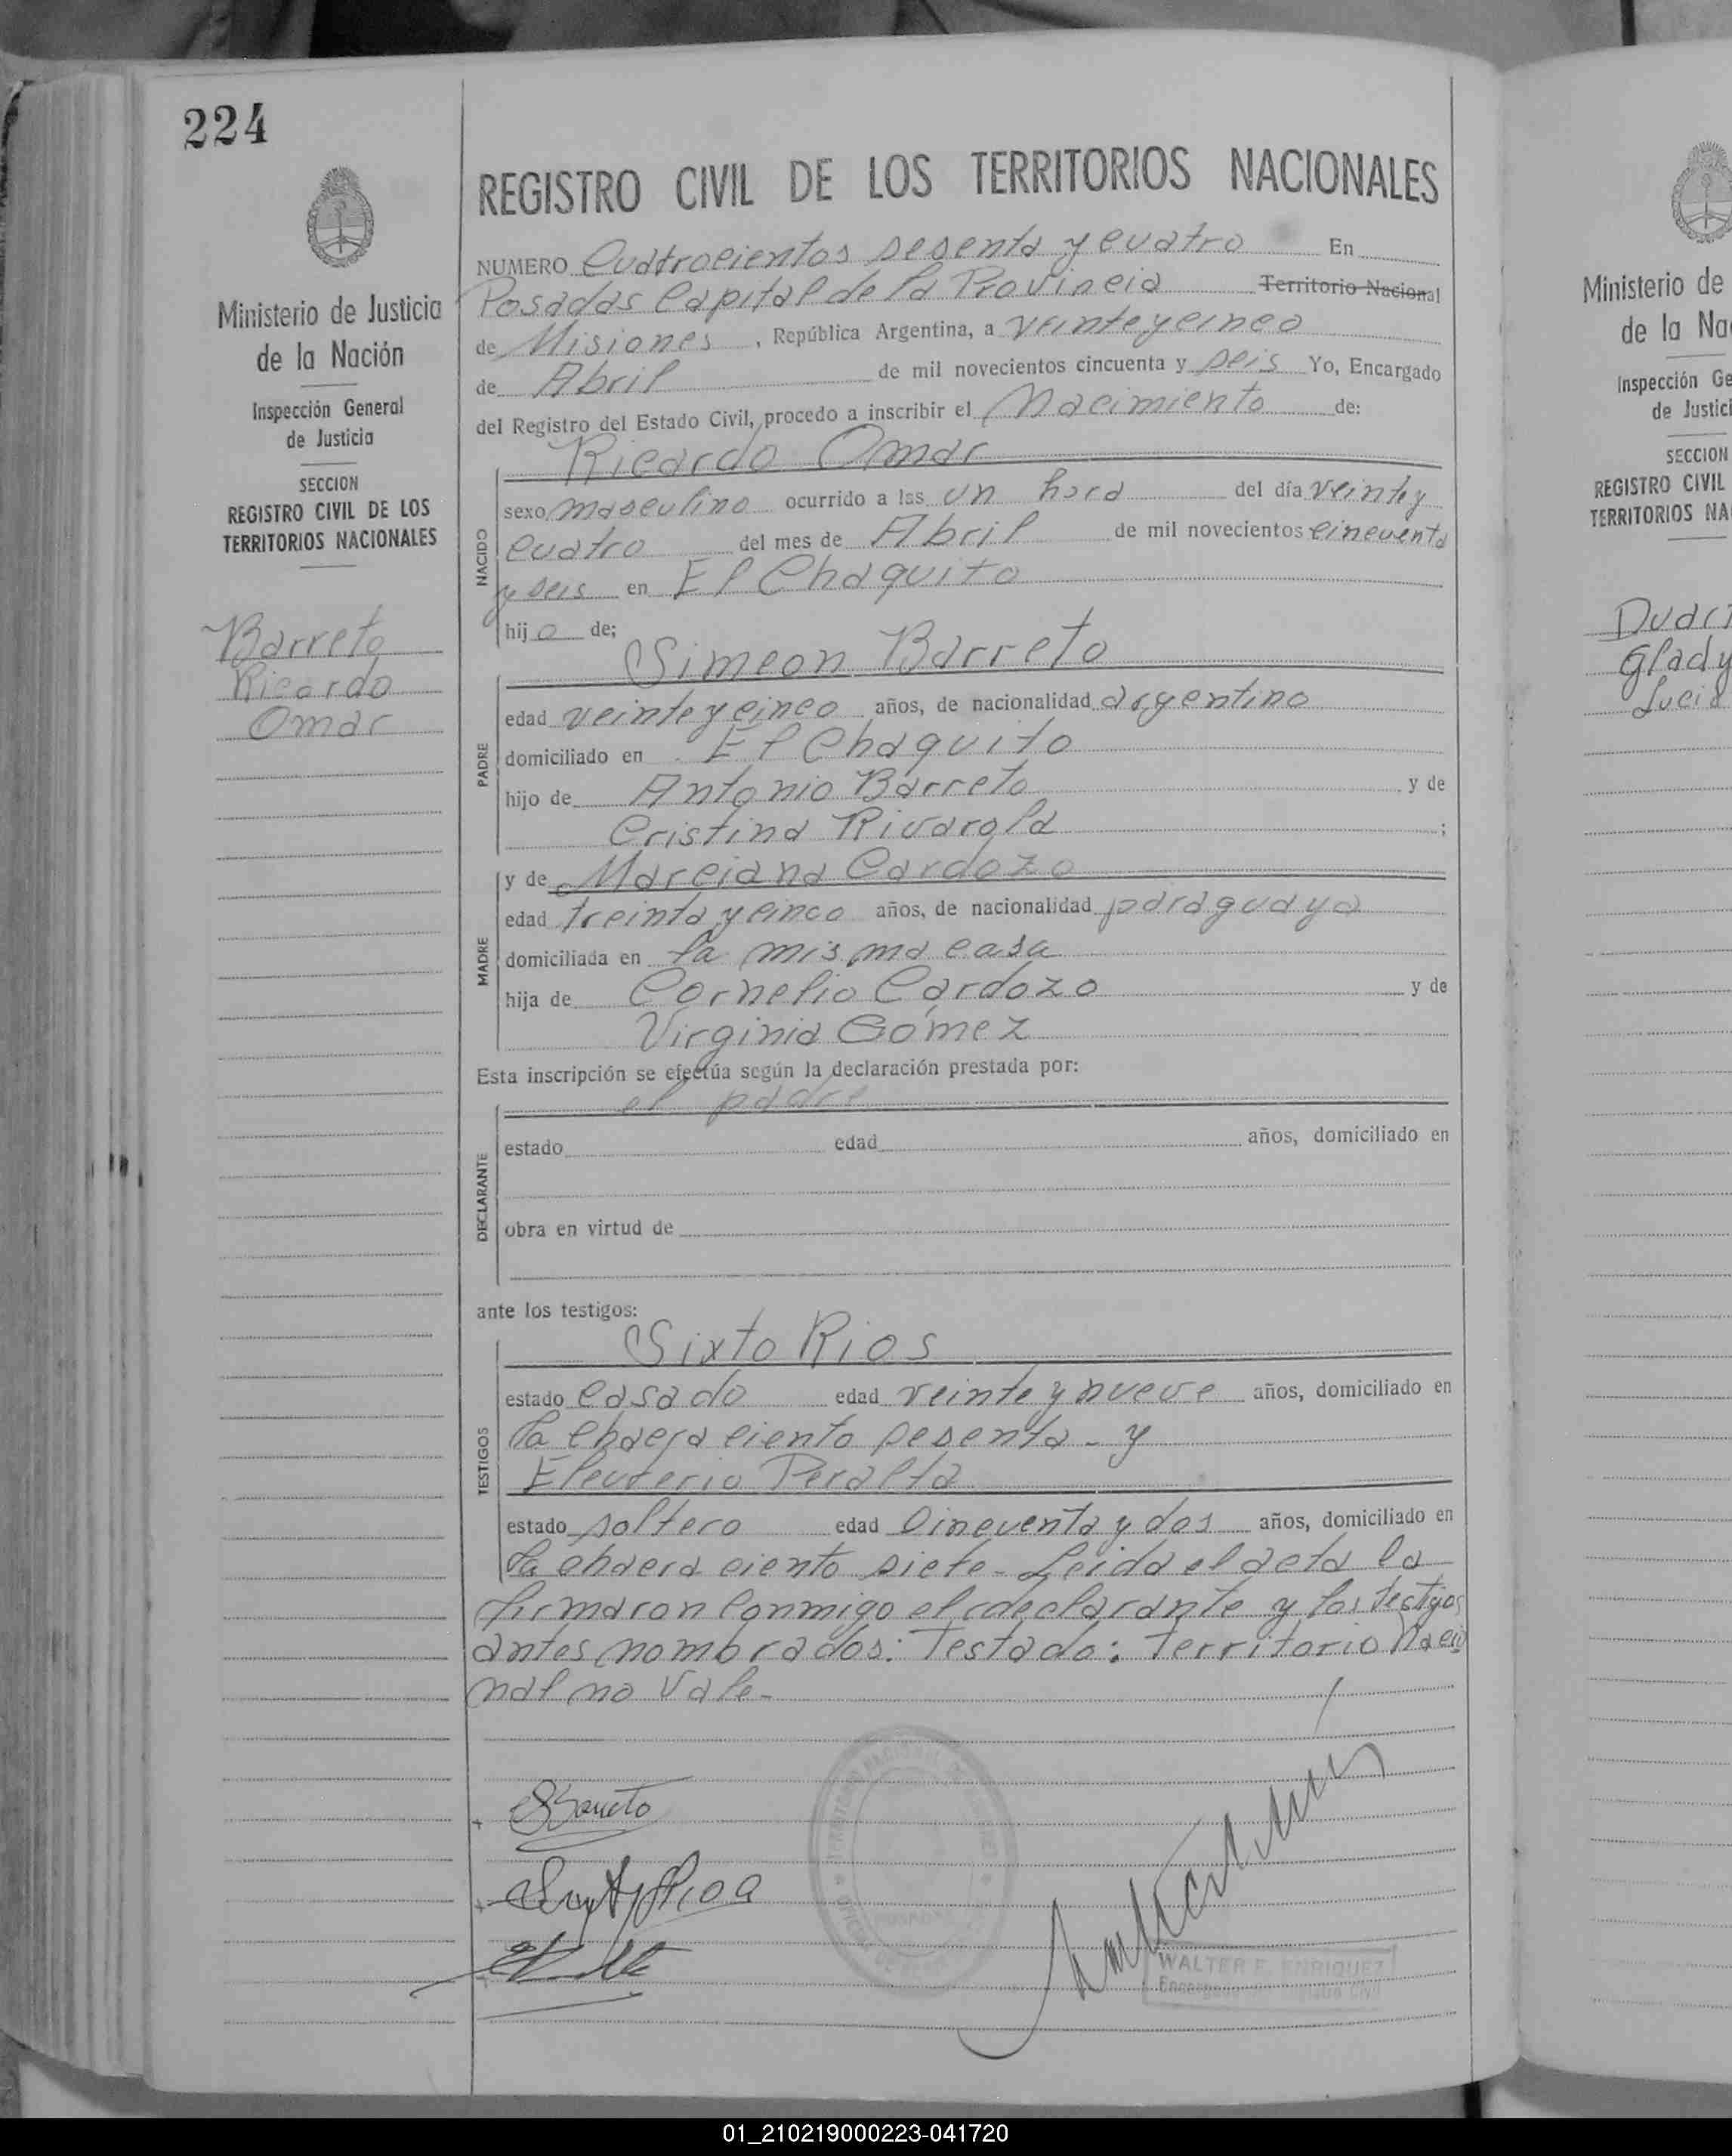 224
REGISTRO CIVIL DE LOS TERRITORIOS NACIONALES
Ministerio de Justicia
de la Nación
Inspección General
de Justicia
SECCION
REGISTRO CIVIL DE LOS
TERRITORIOS NACIONALES
Barreto
Ricardo
Omar
NUMERO Cuatrocientos sesenta y cuatro En
Posadas Capital de la Provincia Territorio Nacional
de Misiones, República Argentina, a veinte y cinco
de Abril de mil novecientos cincuenta y seis Yo, Encargado
del Registro del Estado Civil, procedo a inscribir el Nacimiento de:
Ricardo Omar
NACIDO
sexo masculino ocurrido a las un hora del día veinte y
cuatro del mes de Abril de mil novecientos cincuenta
y seis en El Chaquito
hijo de;
Simeon Barreto
PADRE
edad veinte y cinco años, de nacionalidad argentino
domiciliado en El Chaquito
hijo de Antonio Barreto y de
Cristina Rivarola ;
y de Marciana Cardozo
MADRE
edad treinta y cinco años, de nacionalidad paraguaya
domiciliada en la misma casa
hija de Cornelio Cardozo y de
Virginia Gómez
Esta inscripción se efectúa según la declaración prestada por:
el padre
DECLARANTE
estado edad años, domiciliado en
obra en virtud de
ante los testigos:
Sixto Rios
TESTIGOS
estado casado edad veinte y nueve años, domiciliado en
la chacra ciento sesenta - y
Eleuterio Peralta
estado soltero edad Cincuenta y dos años, domiciliado en
la chacra ciento siete - Leida el acta la
firmaron conmigo el declarante y los testigos
antes nombrados: Testado: Territorio Nacio
nal no vale -
SBarreto
Sixto Rios
POSADAS
WALTER E. ENRIQUEZ
Encargado Registro Civil
Ministerio de
de la Na
Inspección Ge
de Justici
SECCION
REGISTRO CIVIL
TERRITORIOS NA
Duar
Glady
Lucia
01_210219000223-041720